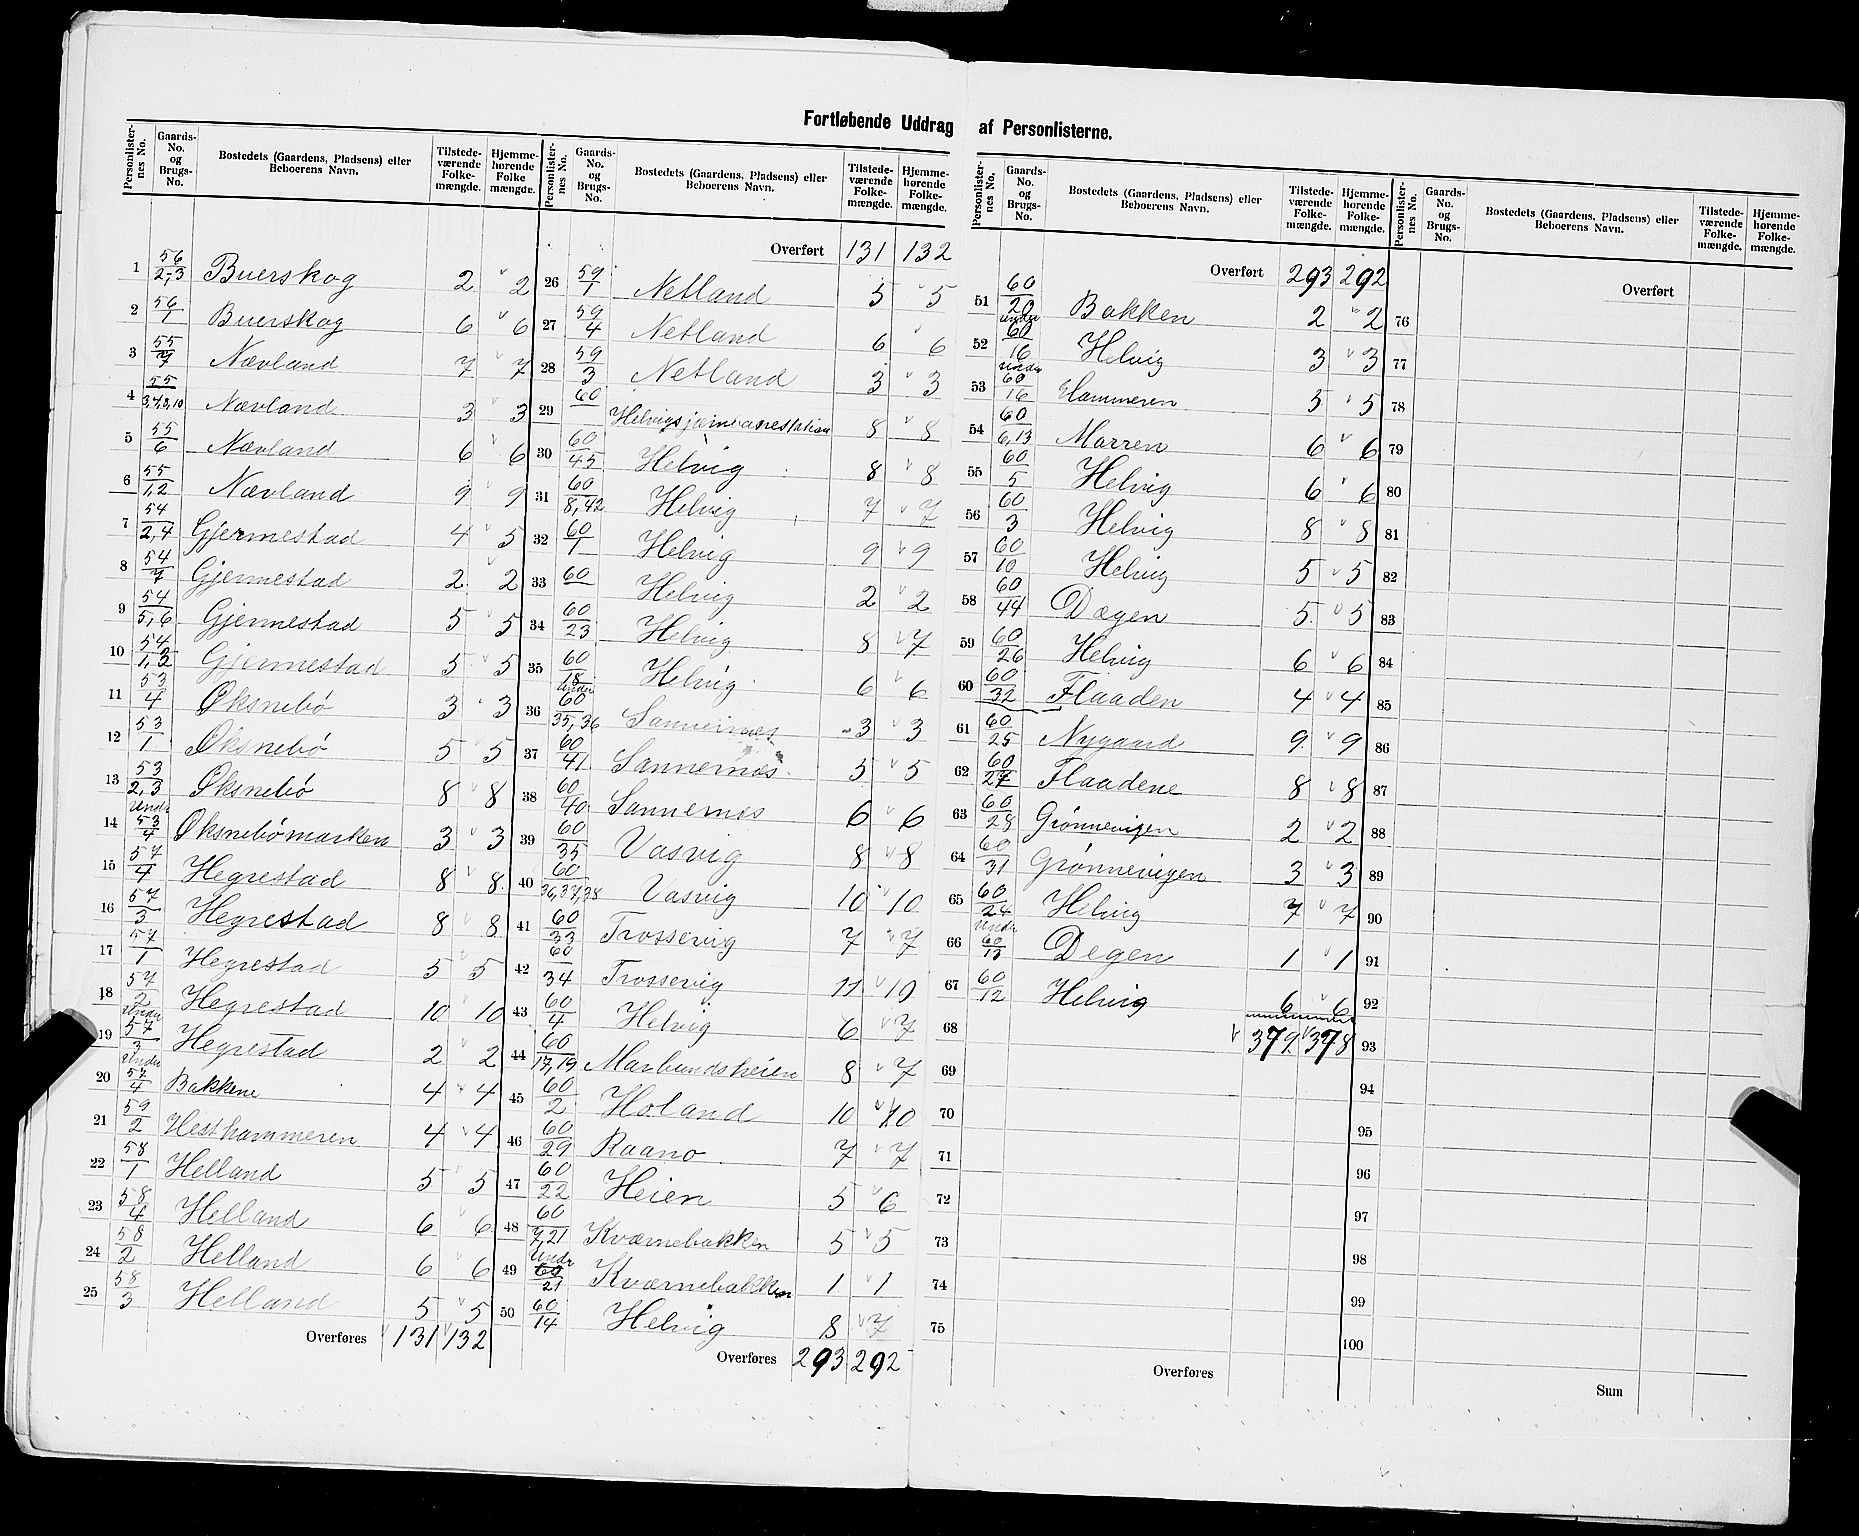 Fortløbende Uddrag af Personlisterne.
Personlisternes No. | Gaards-No. og Brugs-No. | Bostedets (Gaardens, Pladsens) eller Beboerens Navn. | Tilstedeværende Folkemængde. | Hjemmehørende Folkemængde.
1 56/2,3 Buerskog 2 2
2 56/1 Buerskog 6 6
3 55/7 Nævland 7 7
4 55/3,4,8,10 Nævland 3 3
5 55/6 Nævland 6 6
6 55/1,2 Nævland 9 9
7 54/2,4 Gjermestad 4 5
8 54/7 Gjermestad 2 2
9 54/5,6 Gjermestad 5 5
10 54/1,3 Gjermestad 5 5
11 53/4 Øksnebö 3 3
12 53/1 Øksnebö 5 5
13 53/2,3 Øksnebö 8 8
14 Under 53/4 Øksnebömarken 3 3
15 57/4 Hegrestad 8 8
16 57/3 Hegrestad 8 8
17 57/1 Hegrestad 5 5
18 57/2 Hegrestad 10 10
19 Under 57/3 Hegrestad 2 2
20 Under 57/4 Bakkene 4 4
21 59/2 Hesthammeren 4 4
22 58/1 Helland 5 5
23 58/4 Helland 6 6
24 58/2 Helland 6 6
25 58/3 Helland 5 5
Overføres 131 132
Personlisternes No. | Gaards-No. og Brugs-No. | Bostedets (Gaardens, Pladsens) eller Beboerens Navn. | Tilstedeværende Folkemængde. | Hjemmehørende Folkemængde.
Overført 131 132
26 59/1 Netland 5 5
27 59/4 Netland 6 6
28 59/3 Netland 3 3
29 60 Helvigsjærnbanestation 8 8
30 60/45 Helvig 8 8
31 60/8,42 Helvig 7 7
32 60/1 Helvig 9 9
33 60 Helvig 2 2
34 60/23 Helvig 8 7
35 60/18 Helvig 6 6
36 Under 60/35,36 Sannernes 3 3
37 60/41 Sannernes 5 5
38 60/40 Sannernes 6 6
39 60/35 Vasvig 8 8
40 60/36,37,38 Vasvig 10 10
41 60/33 Trossevig 7 7
42 60/34 Trossevig 11 10
43 60/4 Helvig 6 7
44 60/17,19 Marbundsheien 8 7
45 60/2 Holand 10 10
46 60/29 Raano 7 7
47 60/22 Heien 5 6
48 60/7,21 Kværnebakken 5 5
49 Under 60/21 Kværnebakken 1 1
50 60/14 Helvig 8 7
Overføres 293 292
Personlisternes No. | Gaards-No. og Brugs-No. | Bostedets (Gaardens, Pladsens) eller Beboerens Navn. | Tilstedeværende Folkemængde. | Hjemmehørende Folkemængde.
Overført 293 292
51 60/20 Bakken 2 2
52 under 60/16 Helvig 3 3
53 Under 60/16 Hammeren 5 5
54 60/6,13 Marren 6 6
55 60/5 Helvig 6 6
56 60/3 Helvig 8 8
57 60/10 Helvig 5 5
58 60/44 Dægen 5 5
59 60/26 Helvig 6 6
60 60/32 Flaaden 4 4
61 60/25 Nygaard 9 9
62 60/27 Flaadene 8 8
63 60/28 Grönnevigen 2 2
64 60/31 Grönnevigen 3 3
65 60/24 Helvig 7 7
66 Under 60/13 Degen 1 1
67 60/12 Helvig 6 6
68 379 378
69
70
71
72
73
74
75
Overføres
Personlisternes No. | Gaards-No. og Brugs-No. | Bostedets (Gaardens, Pladsens) eller Beboerens Navn. | Tilstedeværende Folkemængde. | Hjemmehørende Folkemængde.
Overført
76
77
78
79
80
81
82
83
84
85
86
87
88
89
90
91
92
93
94
95
96
97
98
99
100
Sum